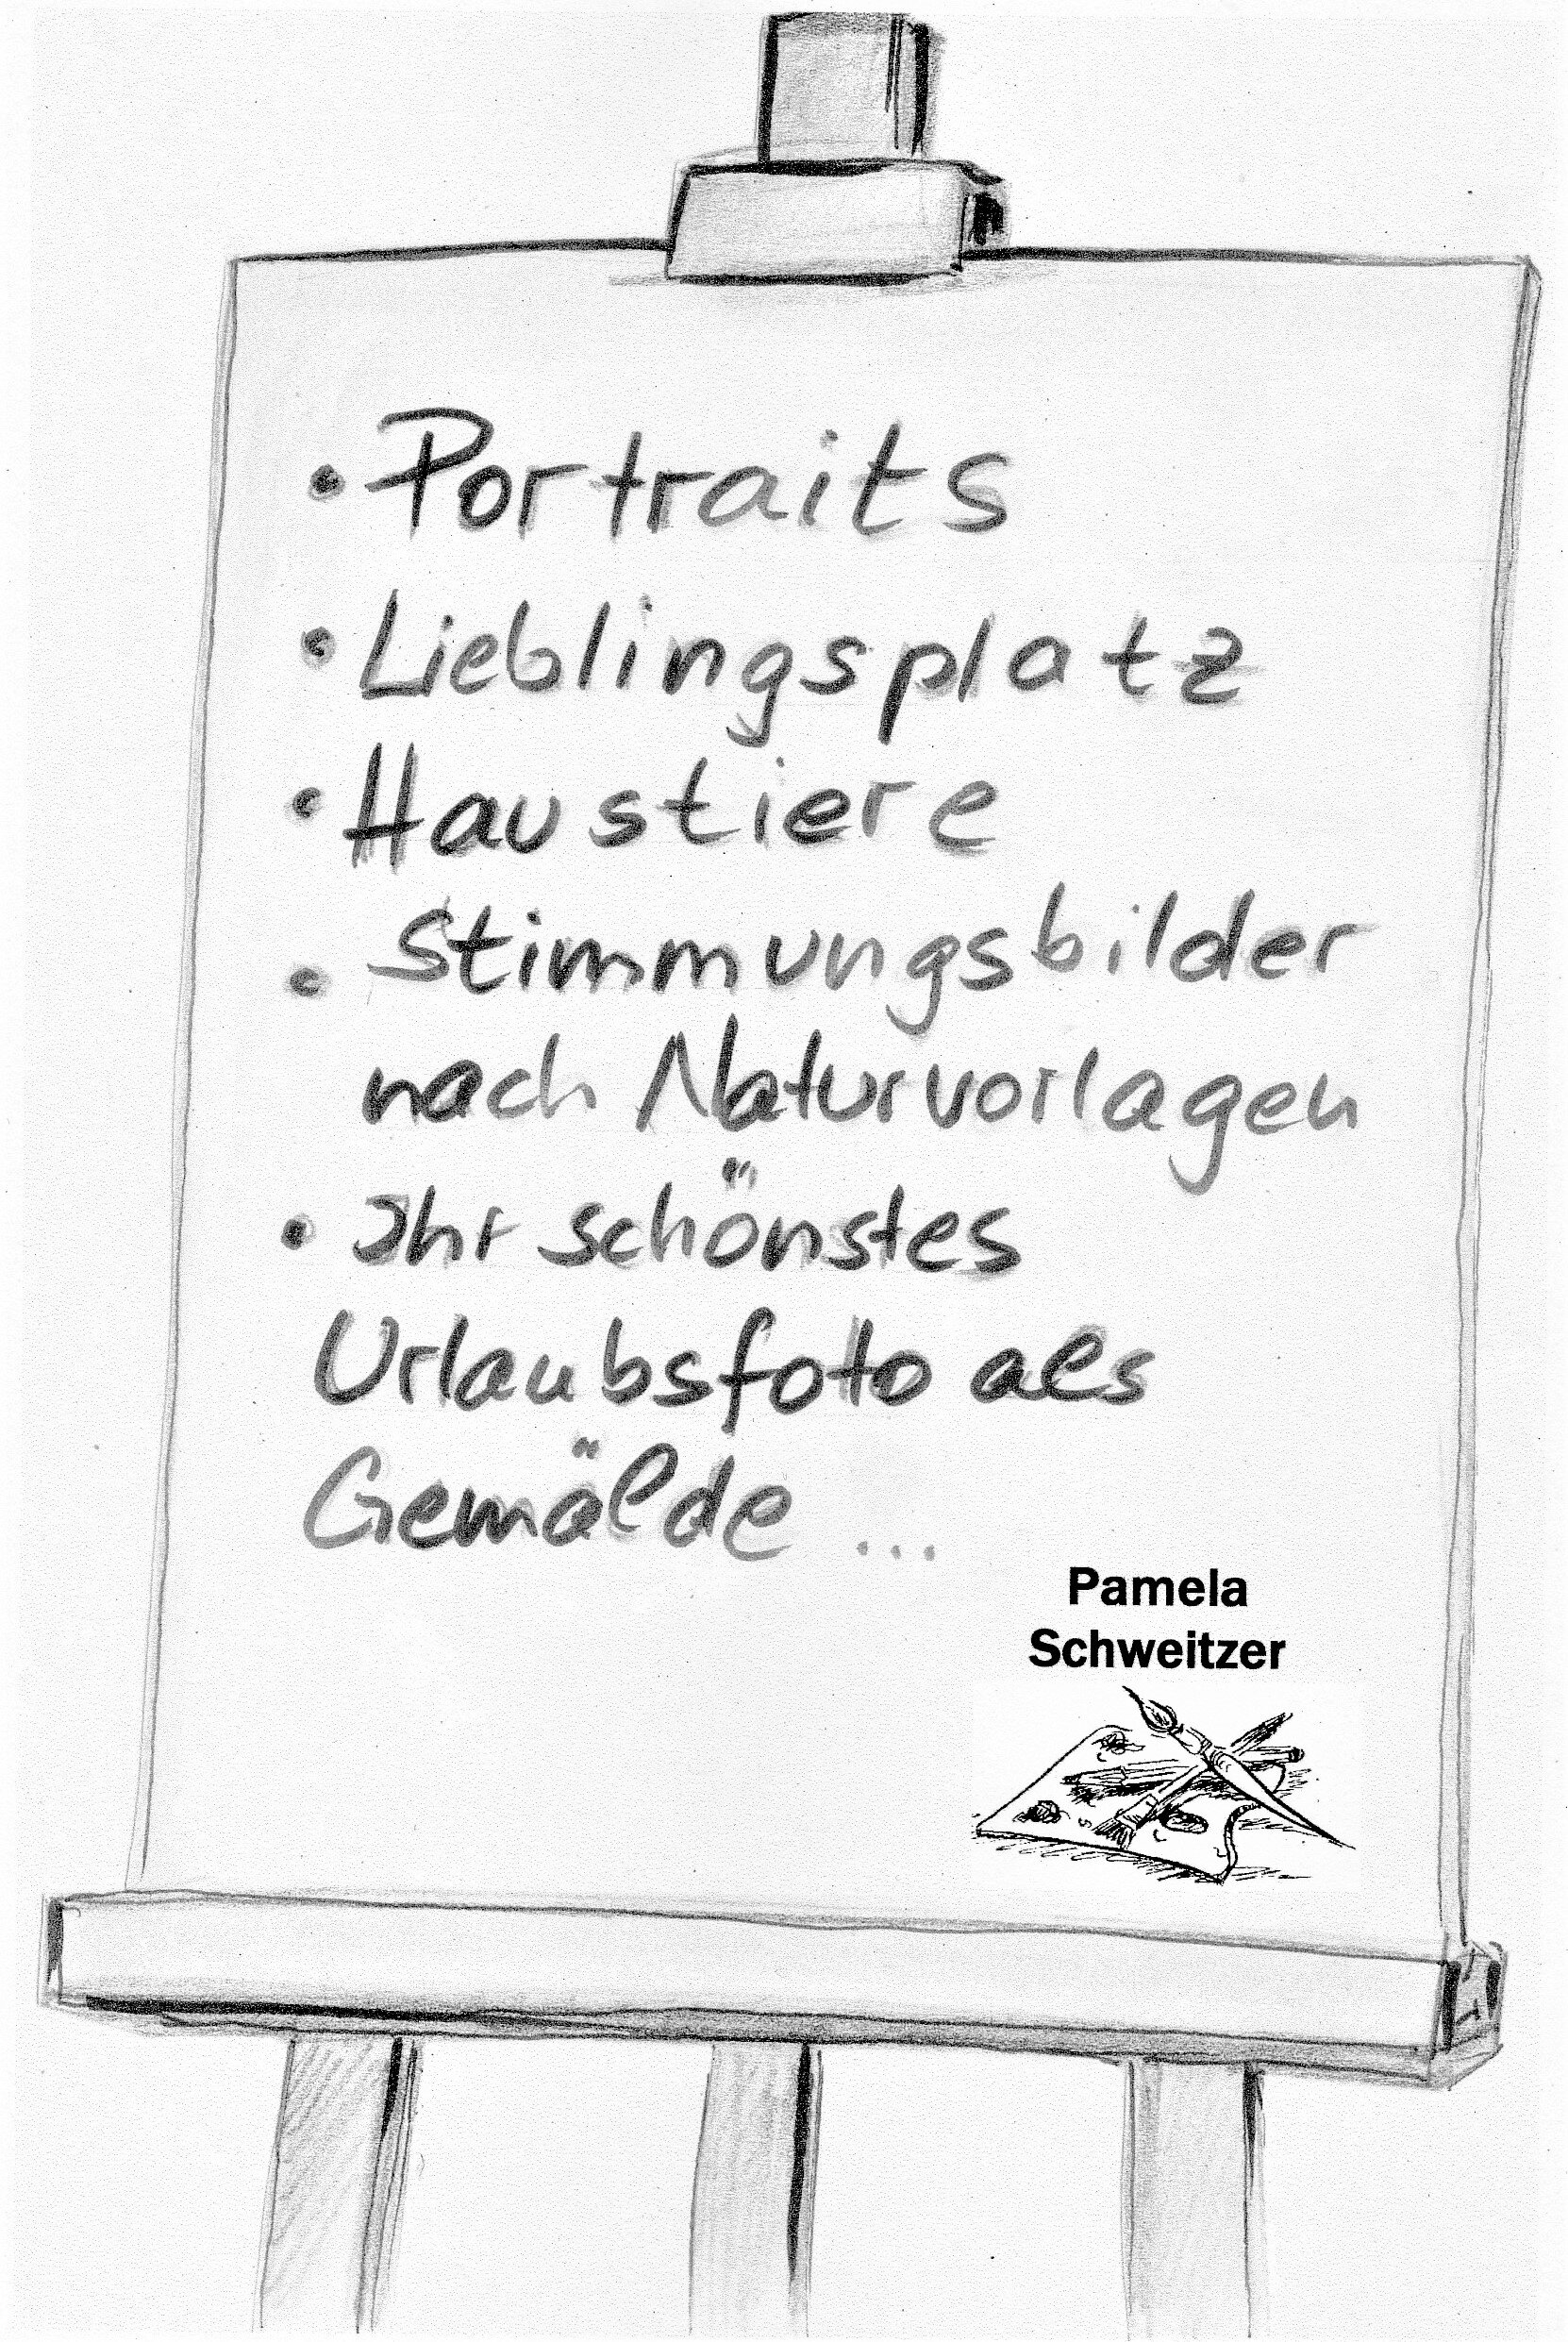 • Portraits
• Lieblingsplatz
• Haustiere
• Stimmungsbilder
nach Naturvorlagen
• Ihr schönstes
Urlaubsfoto als
Gemälde ...
Pamela
Schweitzer